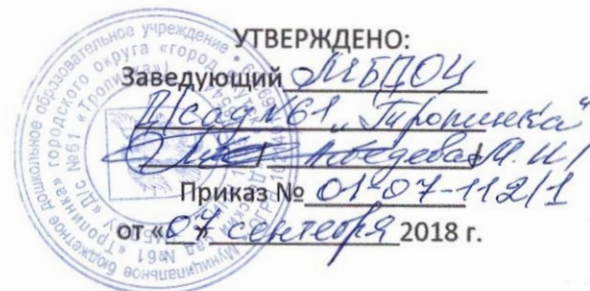 УТВЕРЖДЕНО:
Заведующий МБДОУ
Д/сад №61 „Тропинка“
Лебедева М. И/
Приказ № 01-07-112/1
от «07» сентября 2018 г.
Муниципальное бюджетное дошкольное образовательное учреждение
сад №61 «Тропинка» городского округа «город
Д/С №61 «Тропинка»